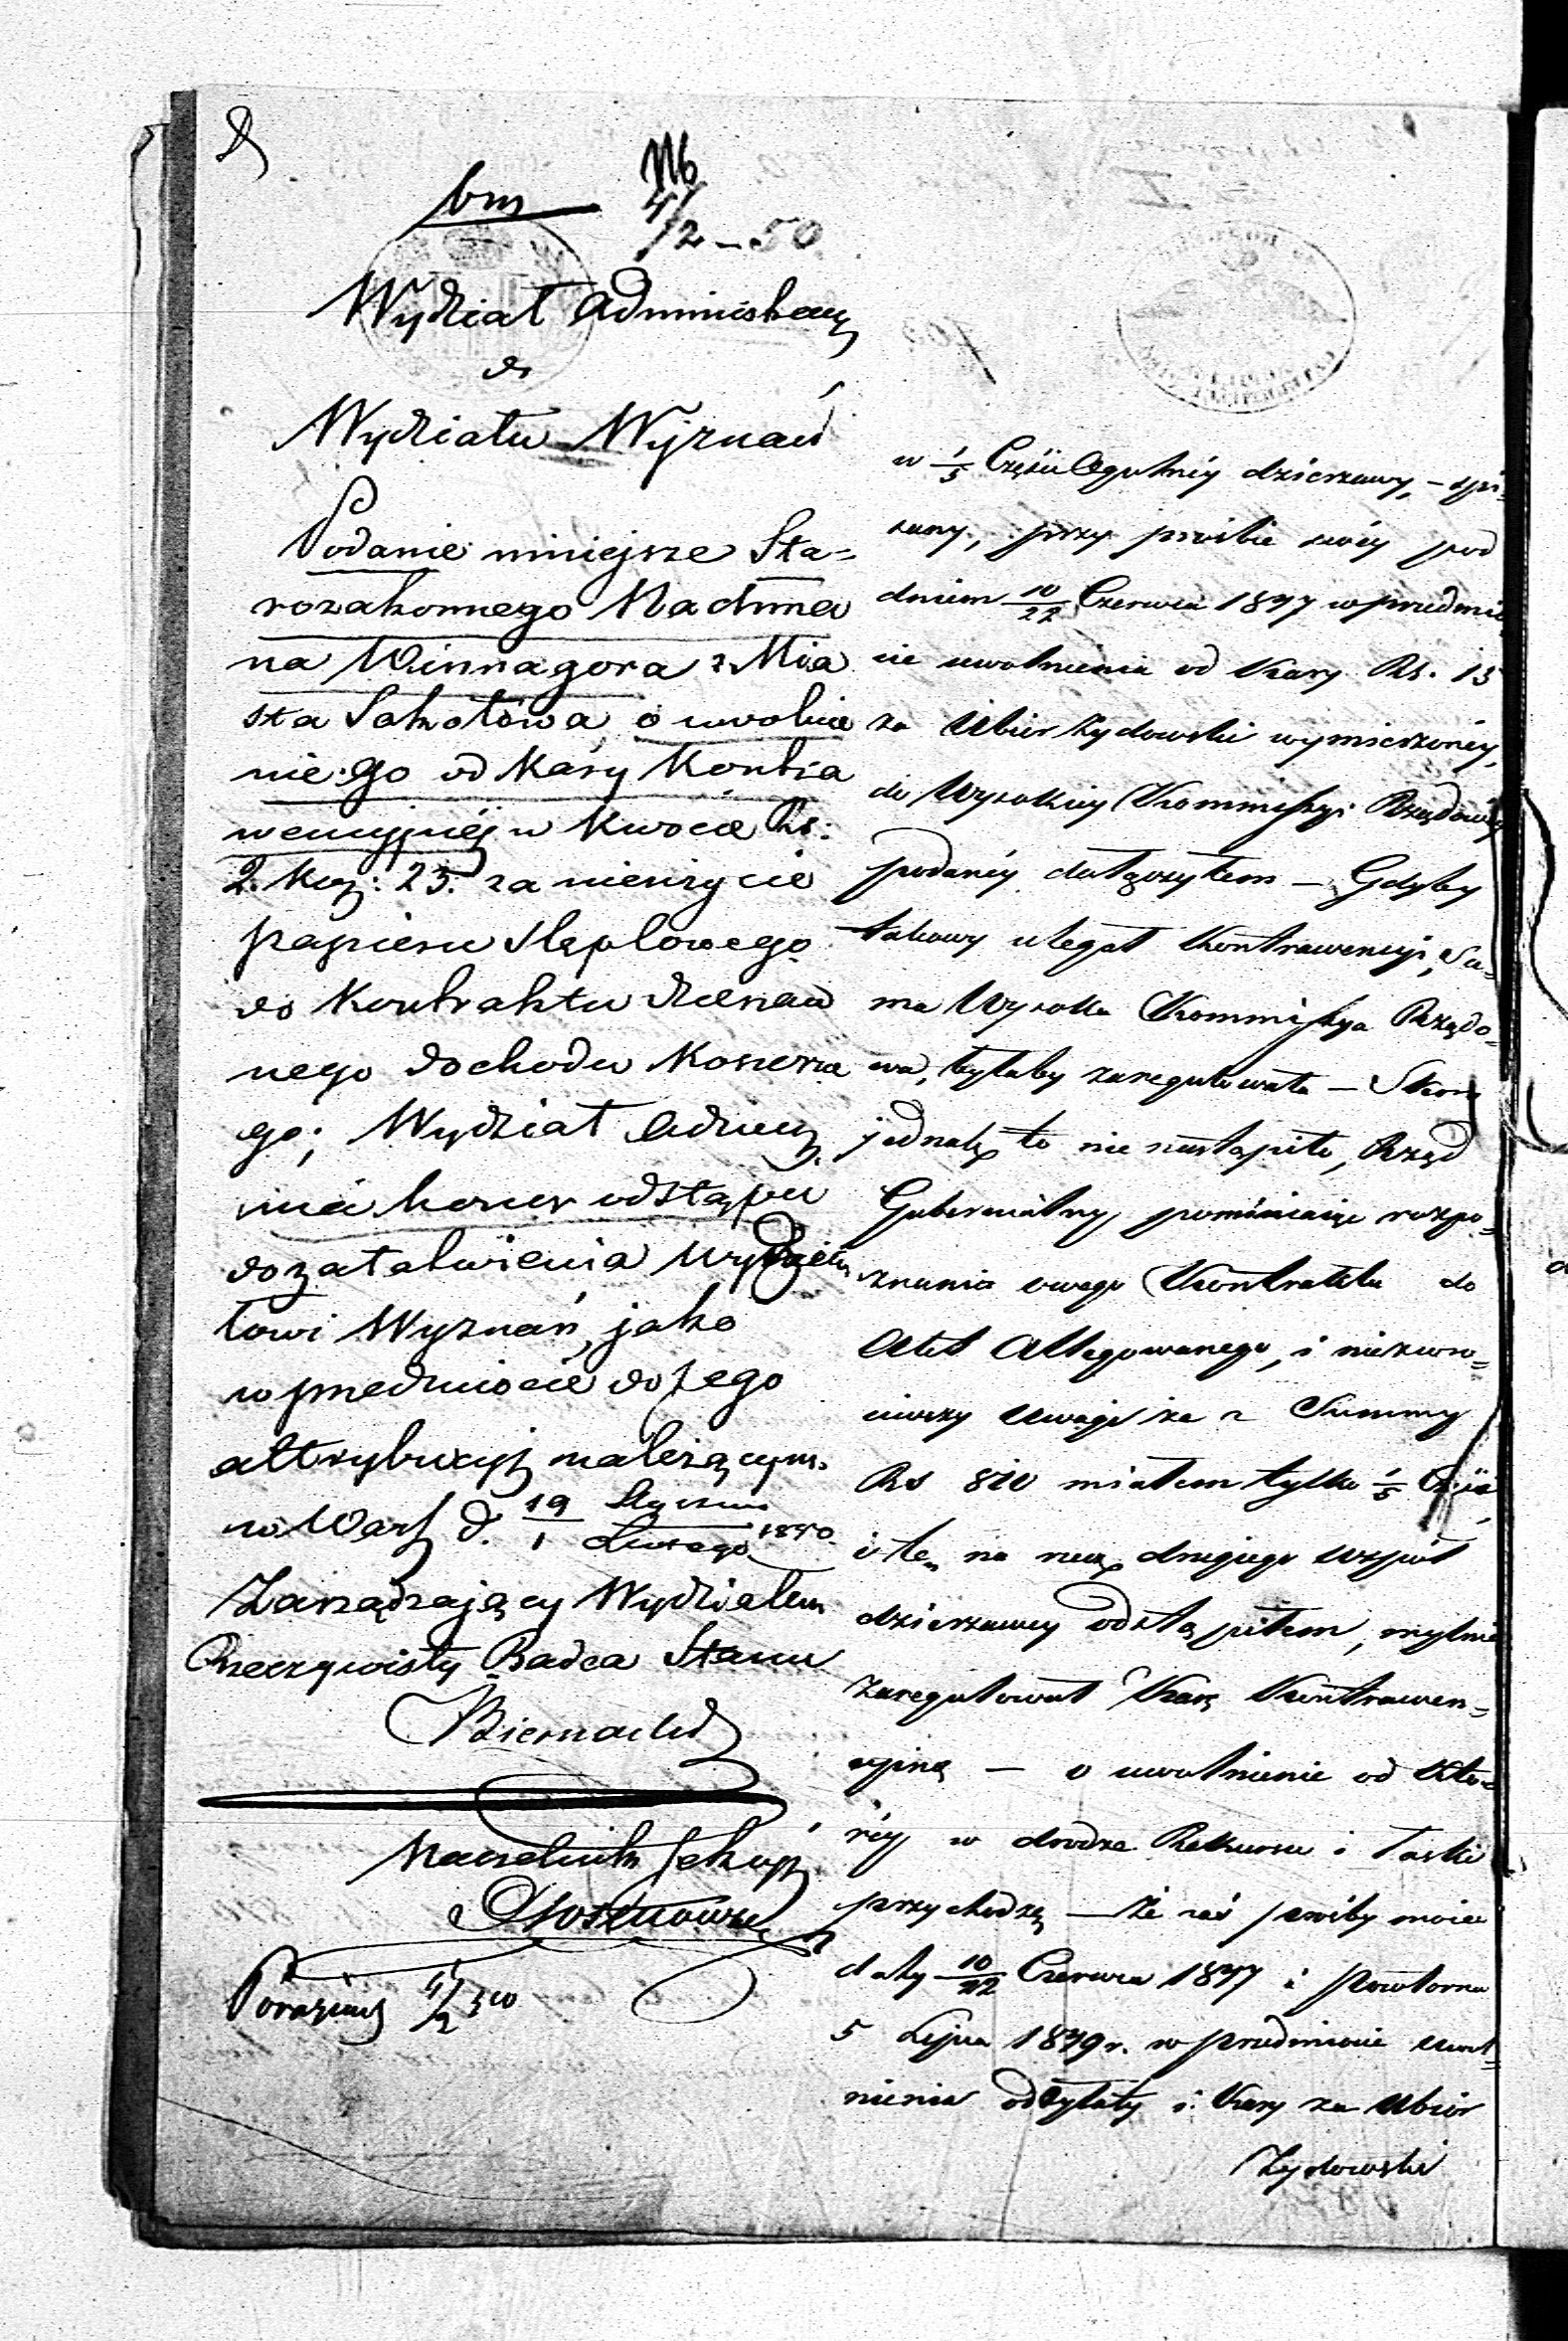 bm
4/2 - 50
Wydział Administracy
do
Wydziału Wyznań
Podanie niniejsze Sta=
rozakonnego Nachma
na Winnagora z Mia
sta Sokołowa, o uwolnie
nie go od Kary Kontra
wencyjnéj w kwocie Rs:
2. kop: 25. za nieużycie
papieru stęplowego
do Kontraktu dzierżaw
nego dochodu Koszerne
go; Wydział Admin.
ma honor odstąpić
do załatwienia Wydzia
łowi Wyznań, jako
w przedmiocie do Jego
attrybucyj należącym.
w Warsz d. 19/1 Stycznia/Lutego 1850.
Zarządzający Wydziałem
Rzeczywisty Radca Stanu
Biernacki
Naczelnik Sekcyi
4/2 50
w 1/5 Części Ogulnéj dzierżawy, – spi=
sany, przy prośbie swéy pod
dniem 10/22 Czerwca 1847 w przedmio
cie uwolnienia od Kary Rs. 15
za Ubior Żydowski wymierzonéy,
do Wysokiey Kommissyi Rządowéy
podanéy dołączyłem – Gdyby
takowy ulegał Kontrawencyi, Sa=
ma Wysoka Kommissya Rządo=
wa, byłaby zaregulowała – Skoro
jednak to nie nastąpiło, Rząd
Gubernialny pomimo rozpo=
znania owego Kontraktu do
Akt Allegowanego, i niezwró=
ciwszy uwagi że z Summy
Rs 810 miałem tylko 1/5 Część,
i tę na rzecz drugiego wspól
dzierżawcy odstąpiłem, mylnie
zaregulował Karę Kontrawen=
cyiną – o uwolnienie od któ=
réy w drodze Rekursu i łaski
przychodzę – Że zaś prośby moie
daty 10/22 Czerwca 1847 i powtorna
5 Lipca 1849 r. w przedmiocie uwol=
nienia od opłaty i Kary za Ubior
Żydowski